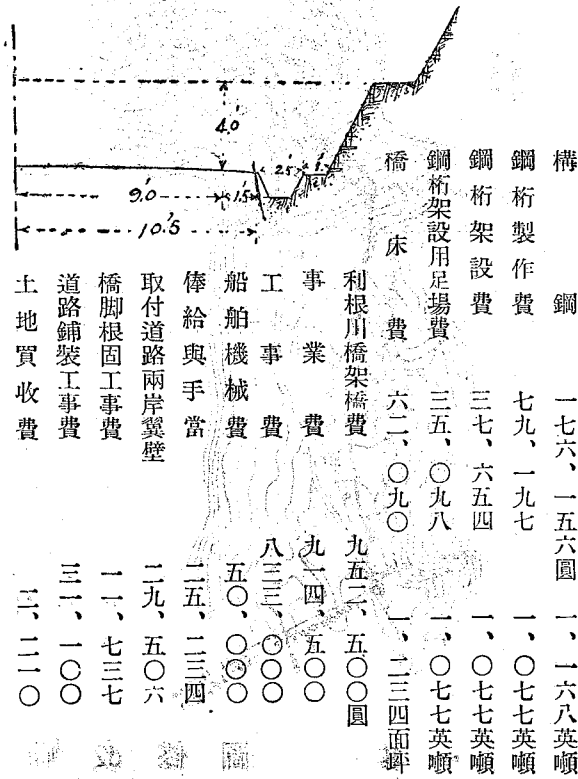 構鋼 一七六、一五六圓 一、一六八英噸
鋼桁製作費 七九、一九七 一、〇七七英噸
鋼桁架設費 三七、六五四 一、〇七七英噸
鋼桁架設用足場費 三五、〇九八 一、〇七七英噸
橋床費 六二、〇九〇 一、二三四面坪
利根川橋架橋費 九五二、五〇〇圓
事業費 九一四、五〇〇
工事費 八三三、〇〇〇
船舶機械費 五〇、〇〇〇
俸給與手當 二五、二三四
取付道路兩岸翼壁 二九、五〇六
橋脚根固工事費 一一、七三七
道路鋪裝工事費 三一、一〇〇
土地買收費 二、二一〇
4.0'
2.5'
9.0'
1.5'
10.5'